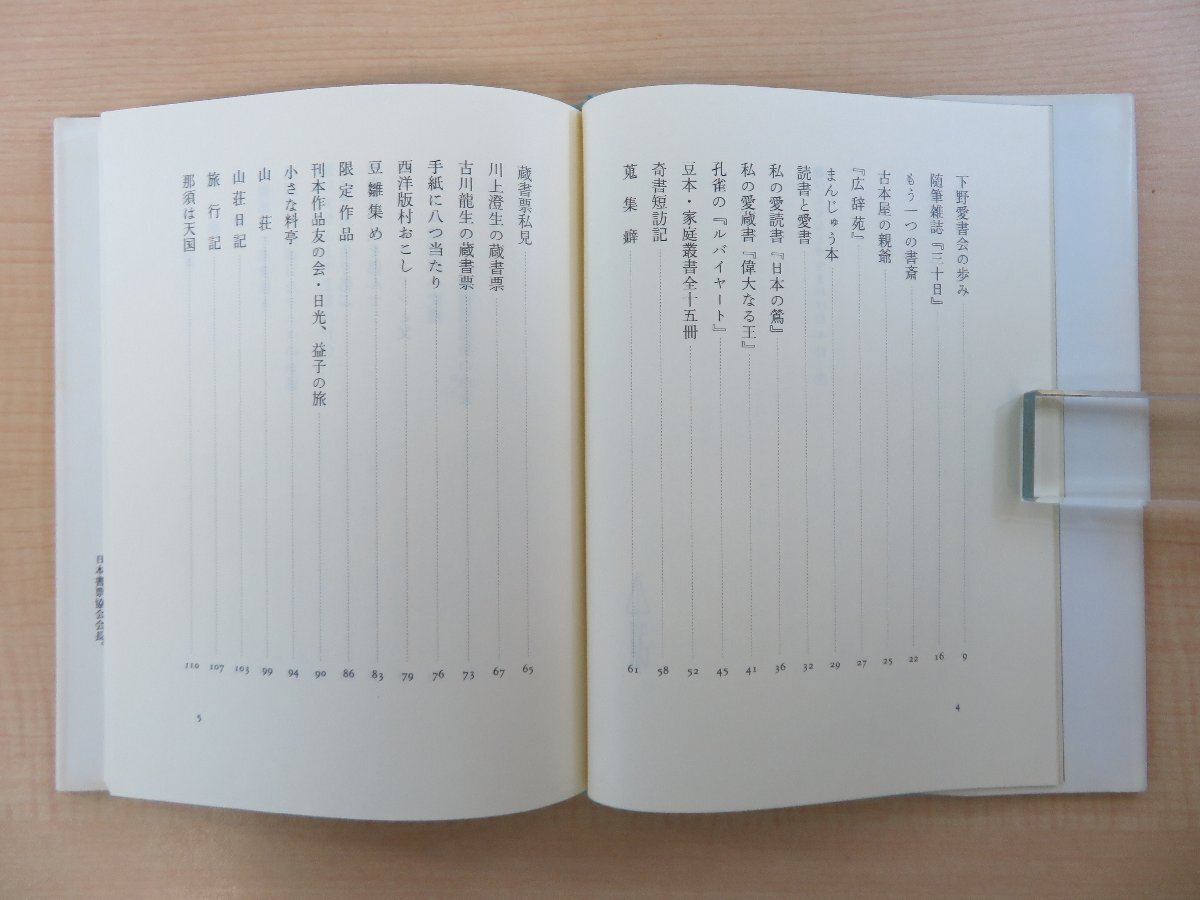 下野愛書会の歩み 9
随筆雑誌『三十日』 16
もう一つの書斎 22
古本屋の親爺 25
『広辞苑』 27
まんじゅう本 29
読書と愛書 32
私の愛読書『日本の鶯』 36
私の愛蔵書『偉大なる王』 41
孔雀の『ルバイヤート』 45
豆本・家庭叢書全十五冊 52
奇書短訪記 58
蒐集癖 61
4
蔵書票私見 65
川上澄生の蔵書票 67
古川龍生の蔵書票 73
手紙に八つ当たり 76
西洋版村おこし 79
豆雛集め 83
限定作品 86
刊本作品友の会・日光、益子の旅 90
小さな料亭 94
山荘 99
山荘日記 103
旅行記 107
那須は天国 110
5
日本書票協会会長。